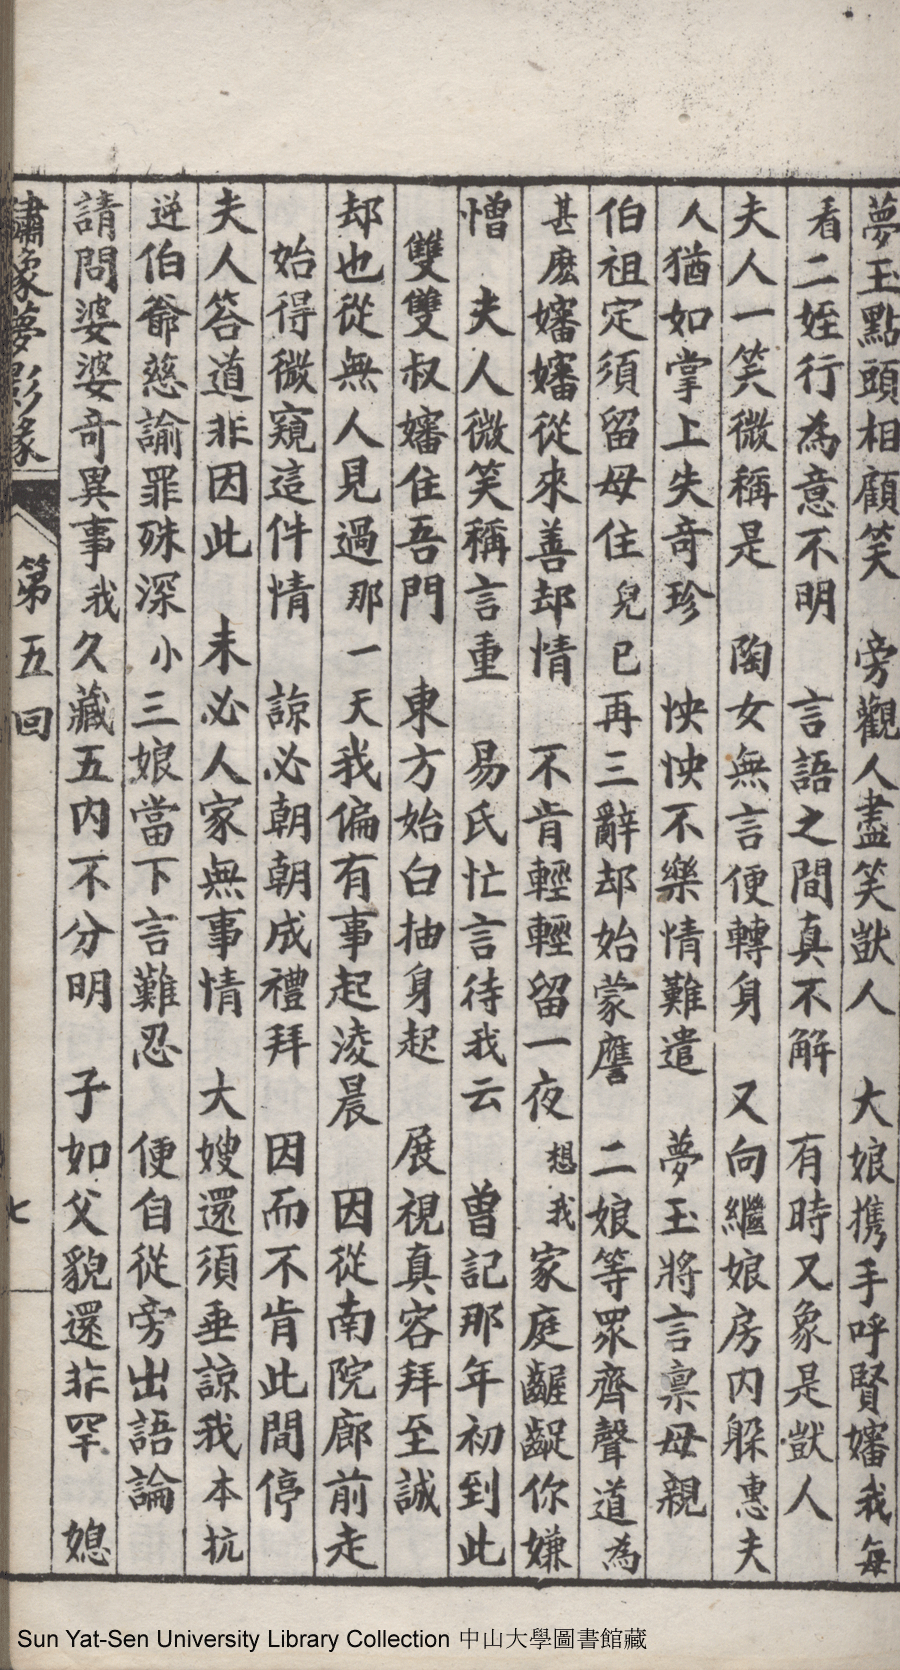 夢玉點頭相顧笑　旁觀人盡笑獃人　大娘攜手呼賢嬸我每
看二姪行為意不明　言語之間真不解　有時又象是獃人
夫人一笑微稱是　陶女無言便轉身　又向繼娘房內躲惠夫
人猶如掌上失奇珍　怏怏不樂情難遣　夢玉將言禀母親
伯祖定須留母住兒已再三辭却始蒙譍　二娘等眾齊聲道為
甚麼嬸嬸從來善却情　不肯輕輕留一夜想我家庭齷齪你嫌
憎　夫人微笑稱言重　易氏忙言待我云　曾記那年初到此
雙雙叔嬸住吾門　東方始白抽身起　展視真容拜至誠
却也從無人見過那一天我偏有事起淩晨　因從南院廊前走
始得微窺這件情　諒必朝朝成禮拜　因而不肯此間停
夫人答道非因此　未必人家無事情　大嫂還須垂諒我本抗
逆伯爺慈諭罪殊深小三娘當下言難忍　便自從旁出語論
請問婆婆奇異事我久藏五內不分明　子如父貌還非罕　媳
繡像夢影緣　第五回　七
Sun Yat-Sen University Library Collection 中山大學圖書館藏